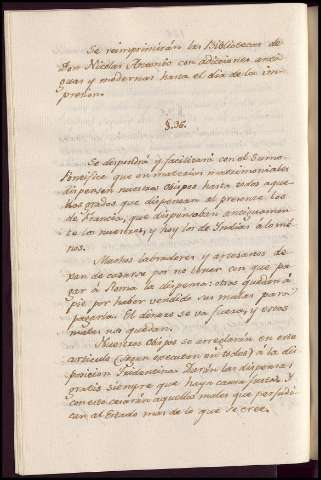 Se reimprimirán las Bibliotecas de
Don Nicolas Antonio con adiciones anti
guas y modernas hasta el dia de la im
presion.
§. 36.
Se dispondrá y facilitará con el Sumo
Pontifice que en materias matrimoniales
dispensen nuestros Obispos hasta todos aque
llos grados que dispensan al presente los
de Francia, que dispensaban antiguamen
te los nuestros, y hoy los de Indias à lo mé
nos.
Muchos labradores y artesanos de
xan de casarse por no tener con que pa
gar à Roma la dispensa: otros quedan à
pie por haber vendido sus mulas para
pagarla. El dinero se va fuera, y estos
males nos quedan.
Nuestros Obispos se arreglarán en este
articulo (segun executan en todos) à la dis
posicion Tridentina. Darán las dispensas
gratis siempre que haya causa justa. Y
con esto cesarán aquellos males que perjudi
can al Estado mas de lo que se cree.